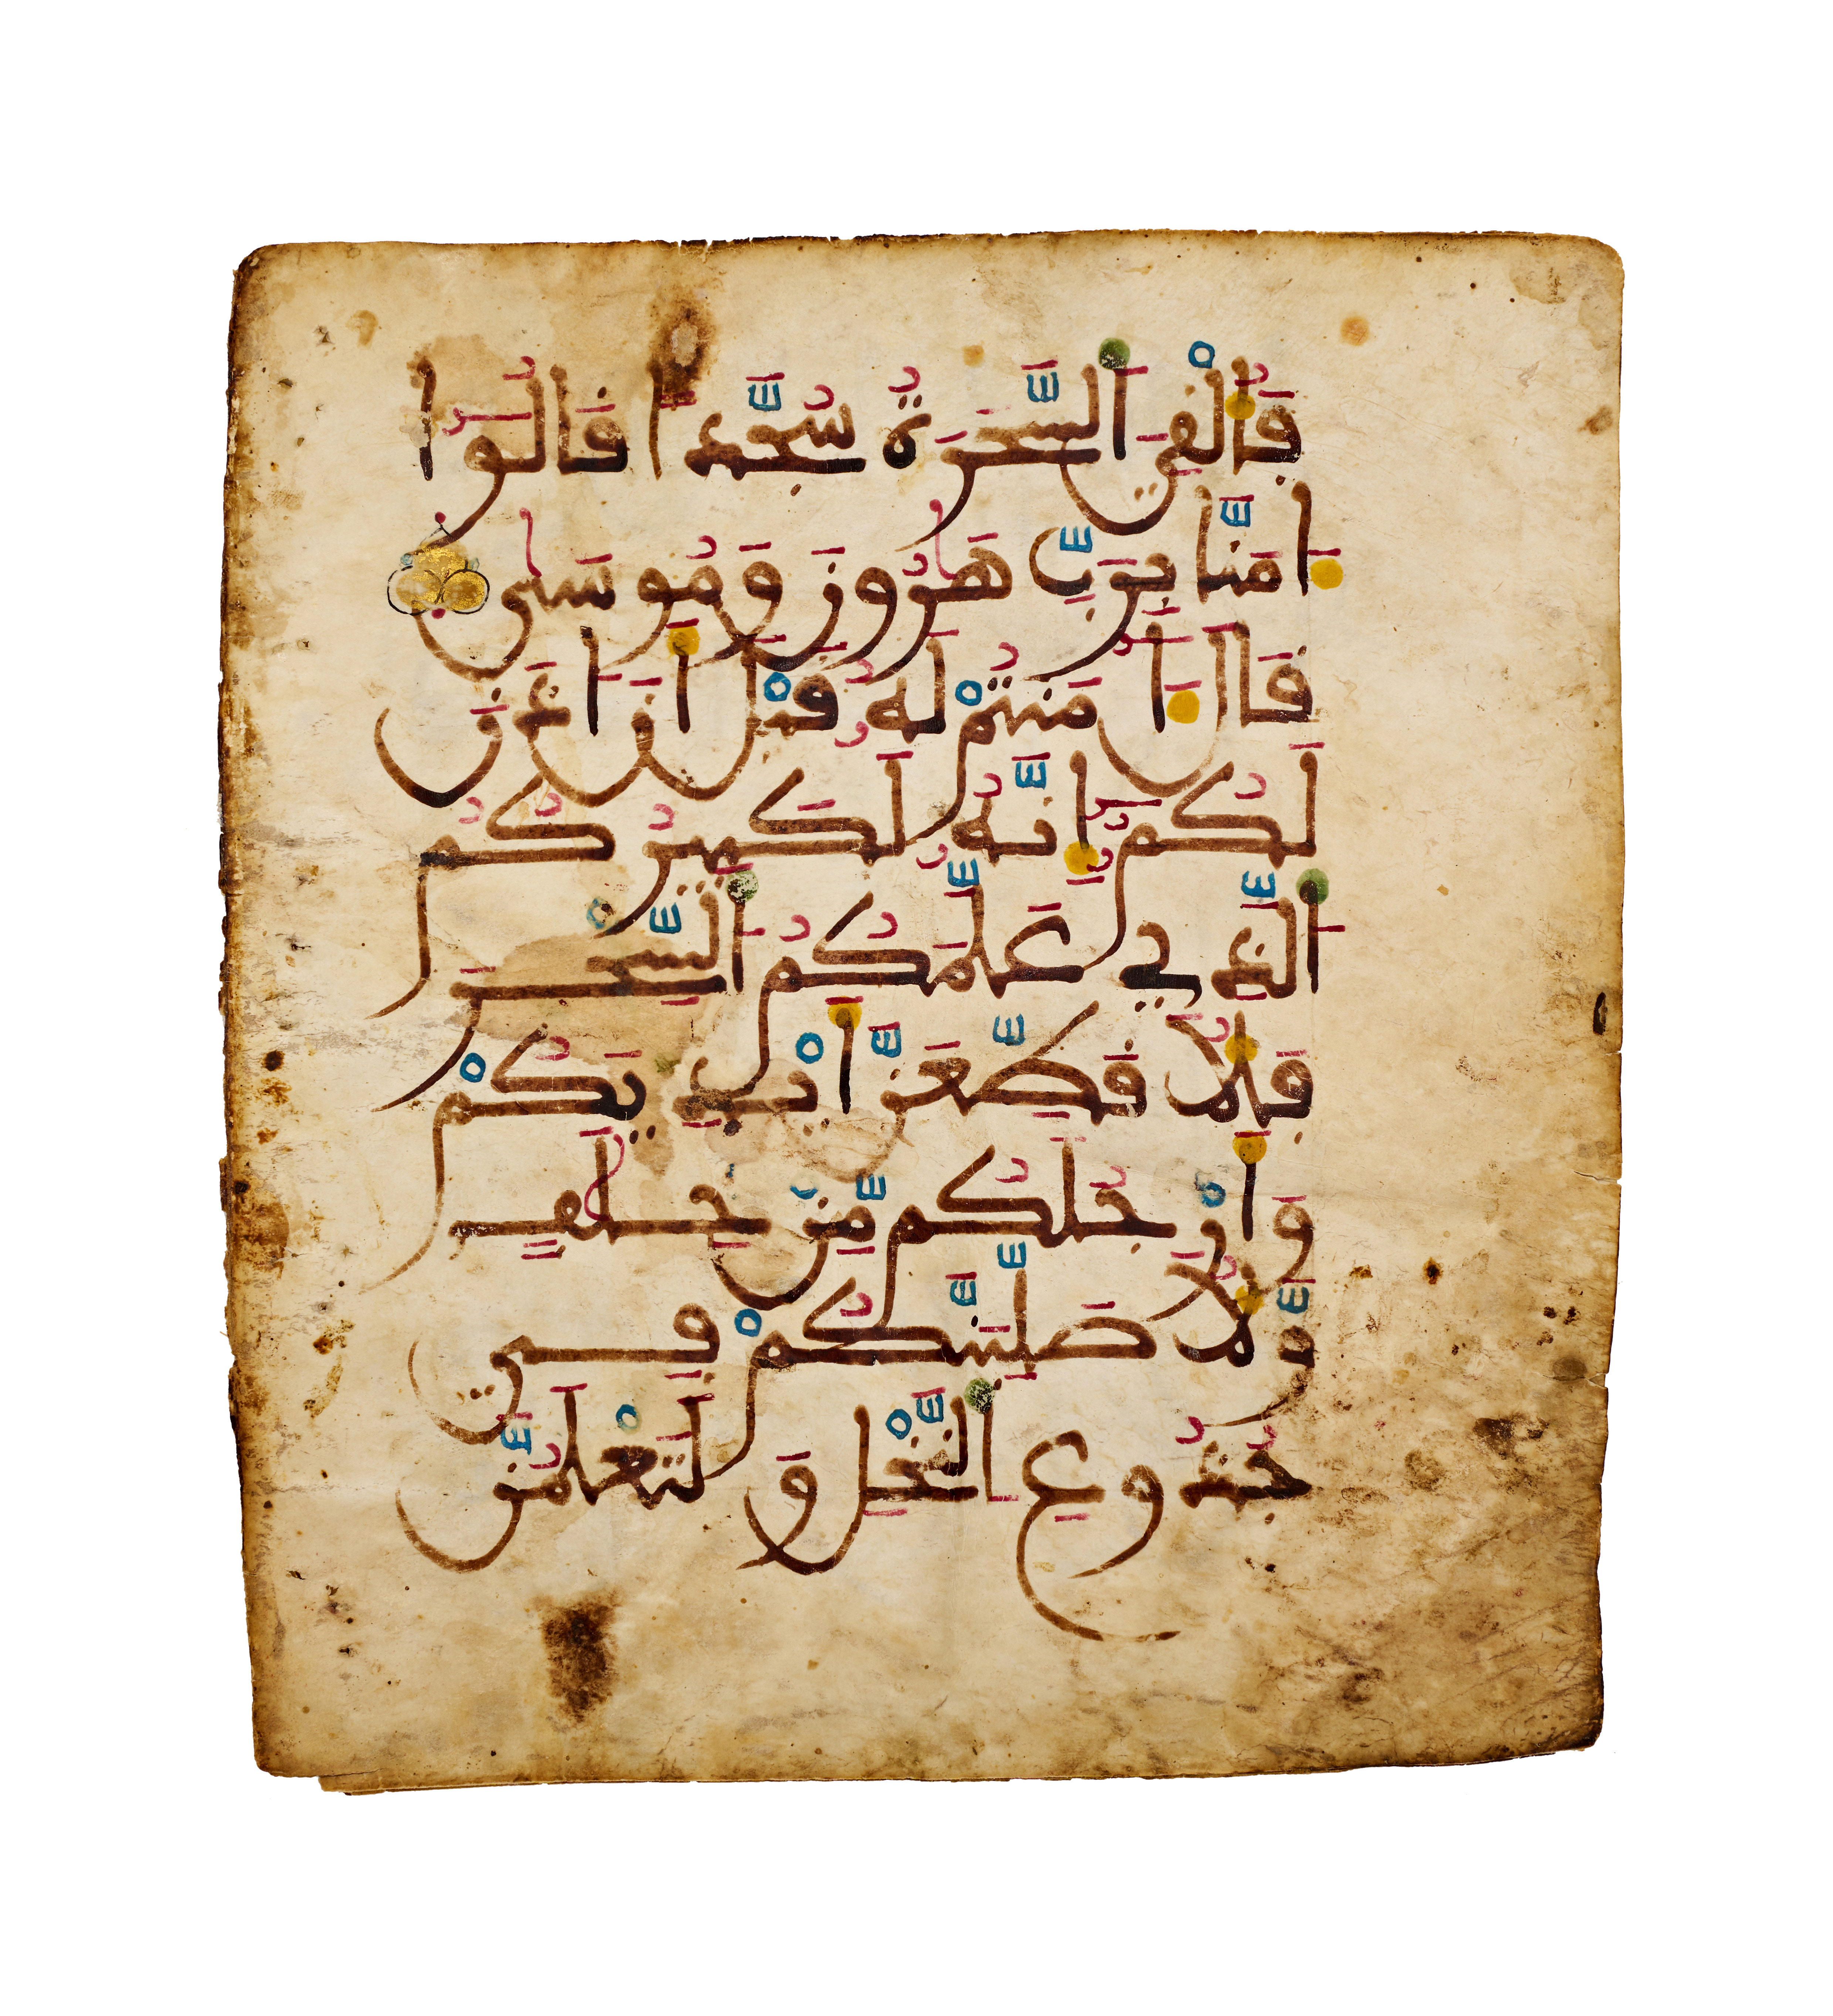 فَأُلْقِيَ اَلسَّحَرَةُ سُجَّداً قَالُوٓا
ءَامَنَّا بِرَبِّ هَٰرُونَ وَمُوسَىٰ
قَالَ ءَآمَنتُمْ لَهُۥ قَبْلَ أَنَ اٰذَنَ
لَكُمُۥٓ إِنَّهُۥ لَكَبِيرُكُمُ
اُلَّذِي عَلَّمَكُمُ اُلسِّحْرَ
فَلَأُقَطِّعَنَّ أَيْدِيَكُمْ
وَأَرْجُلَكُم مِّنْ خِلَٰفٖ
وَّلَأُصَلِّبَنَّكُمْ فِي
جُذُوعِ اِلنَّخْلِ وَلَتَعْلَمُنَّ